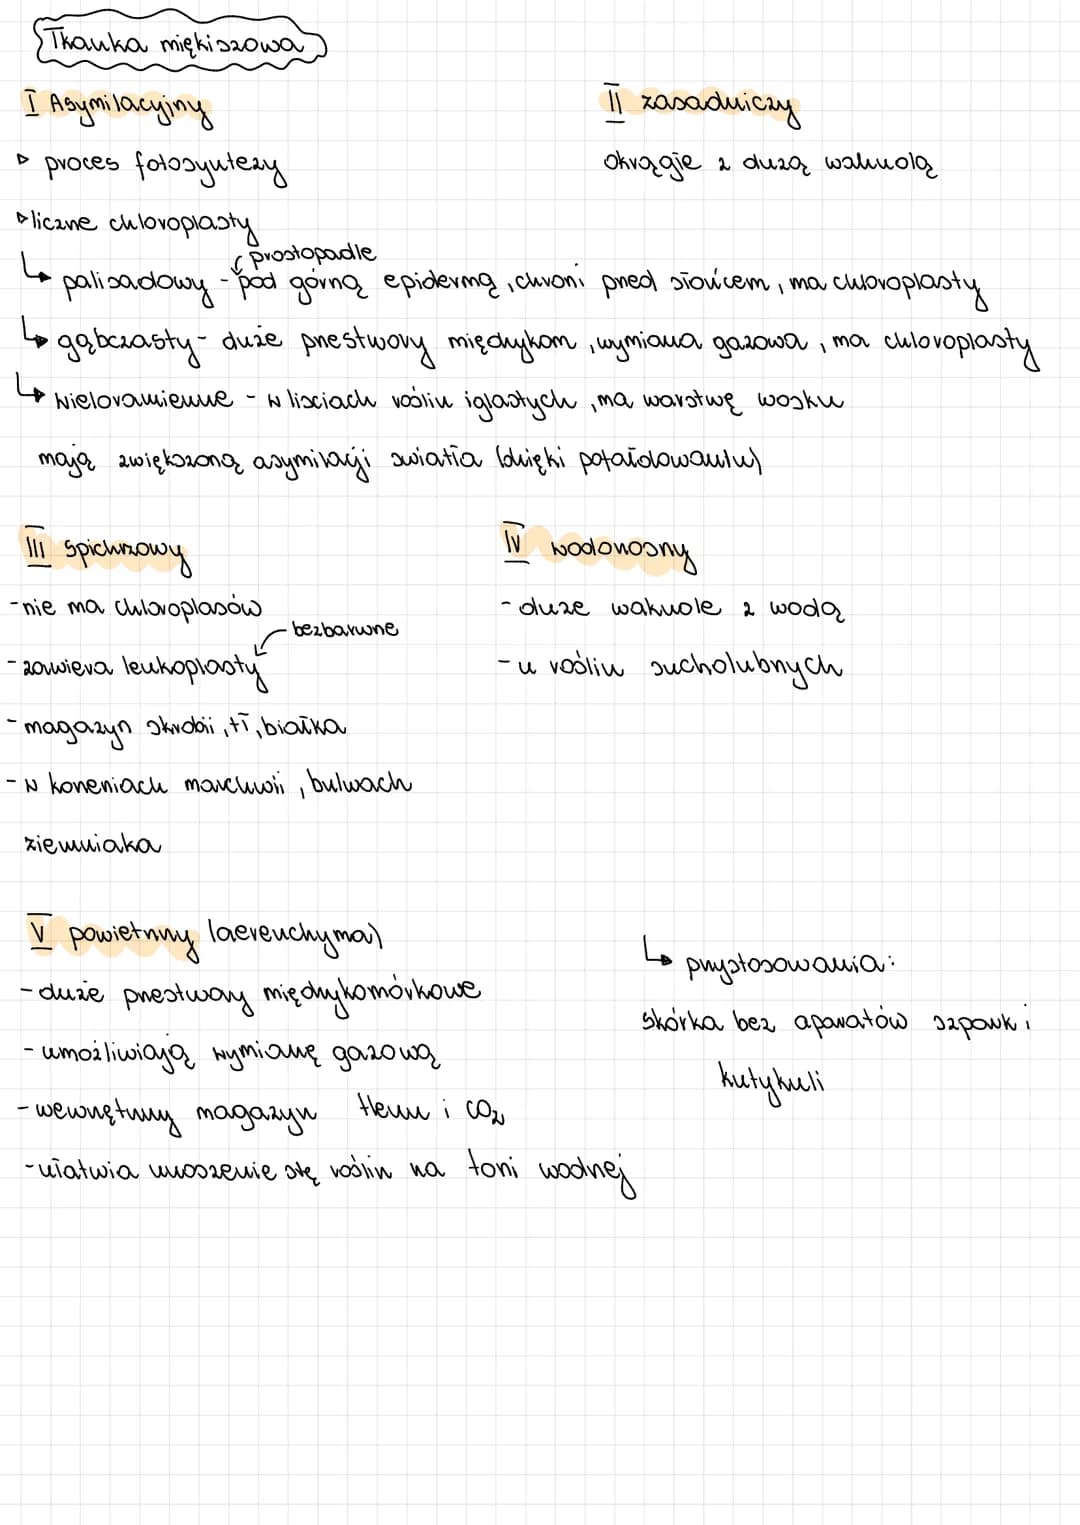 Tkanka miękiszowa
I Asymilacyjny
▹ proces fotosyntezy
▹ liczne chloroplasty
prostopadle
↳ palisadowy - pod górną epidermą, chroni przed słońcem, ma chloroplasty
↳ gąbczasty - duże przestwory międzykom, wymiana gazowa, ma chloroplasty
↳ wieloramienne - w lisciach roślin iglastych, ma warstwę wosku
mają zwiększoną asymilacji swiatła (dzięki pofałdowaniu)
II zasadniczy
okrągłe z dużą wakuolą
III spichrzowy
- nie ma chloroplasów
bezbarwne
- zawiera leukoplasty
- magazyn skrobii, tł, białka
- w korzeniach marchwii, bulwach
ziemniaka
IV wodonośny
- duże wakuole z wodą
- u roślin sucholubnych
V powietrzny (aerenchyma)
- duże przestwory międzykomórkowe
- umożliwiają wymianę gazową
- wewnętrzny magazyn tlenu i CO₂
- ułatwia unoszenie się roślin na toni wodnej
↳ przystosowania:
skórka bez aparatów szpark i
kutykuli